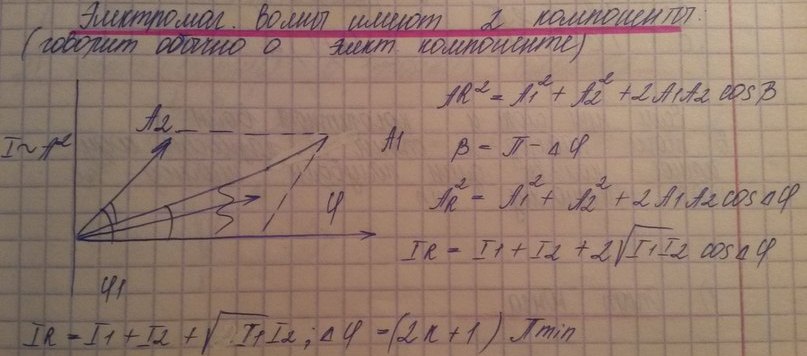 Электромаг. волны имеют 2 компоненты.
(говорит обычно о элект. компоненте)
I ~ A²
A2
A1
φ
φ1
AR² = A1² + A2² + 2A1A2 cosβ
β = π - Δφ
AR² = A1² + A2² + 2A1A2 cosΔφ
IR = I1 + I2 + 2√I1I2 cosΔφ
IR = I1 + I2 + √I1I2; Δφ = (2k+1) πmin